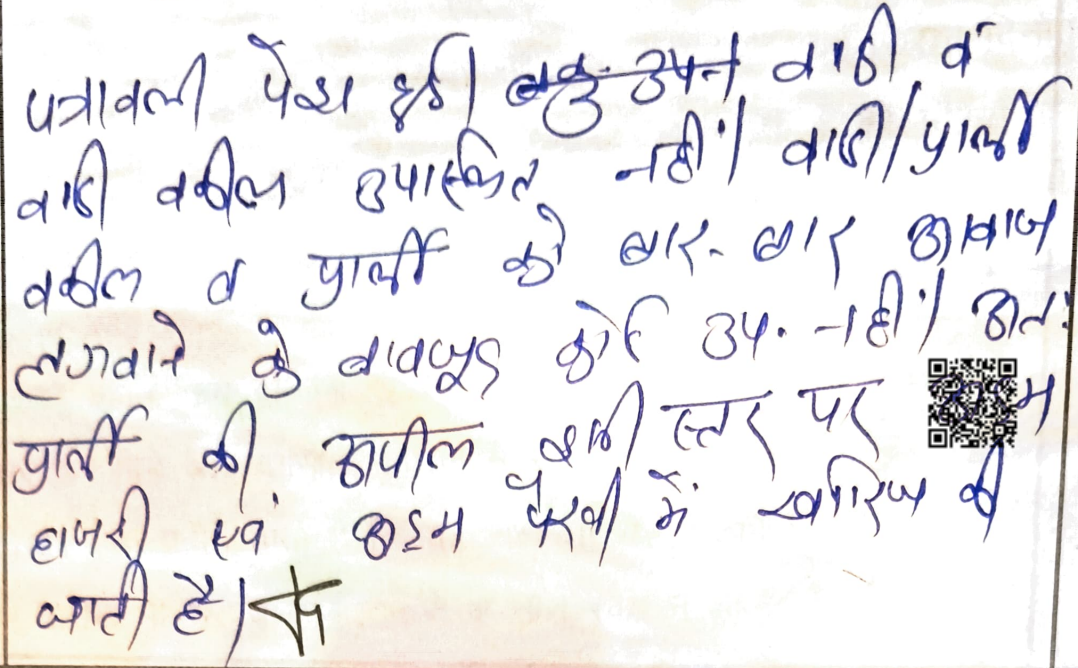 पत्रावली पेश हुई। वादी व
वादी वकील उपस्थित नहीं। वादी/प्रार्थी
वकील व प्रार्थी को बार-बार आवाज
लगवाने के बावजूद कोई उप. नहीं। अतः
प्रार्थी की अपील इसी स्तर पर
हाजरी एवं अदम पैरवी में खारिज की
जाती है।